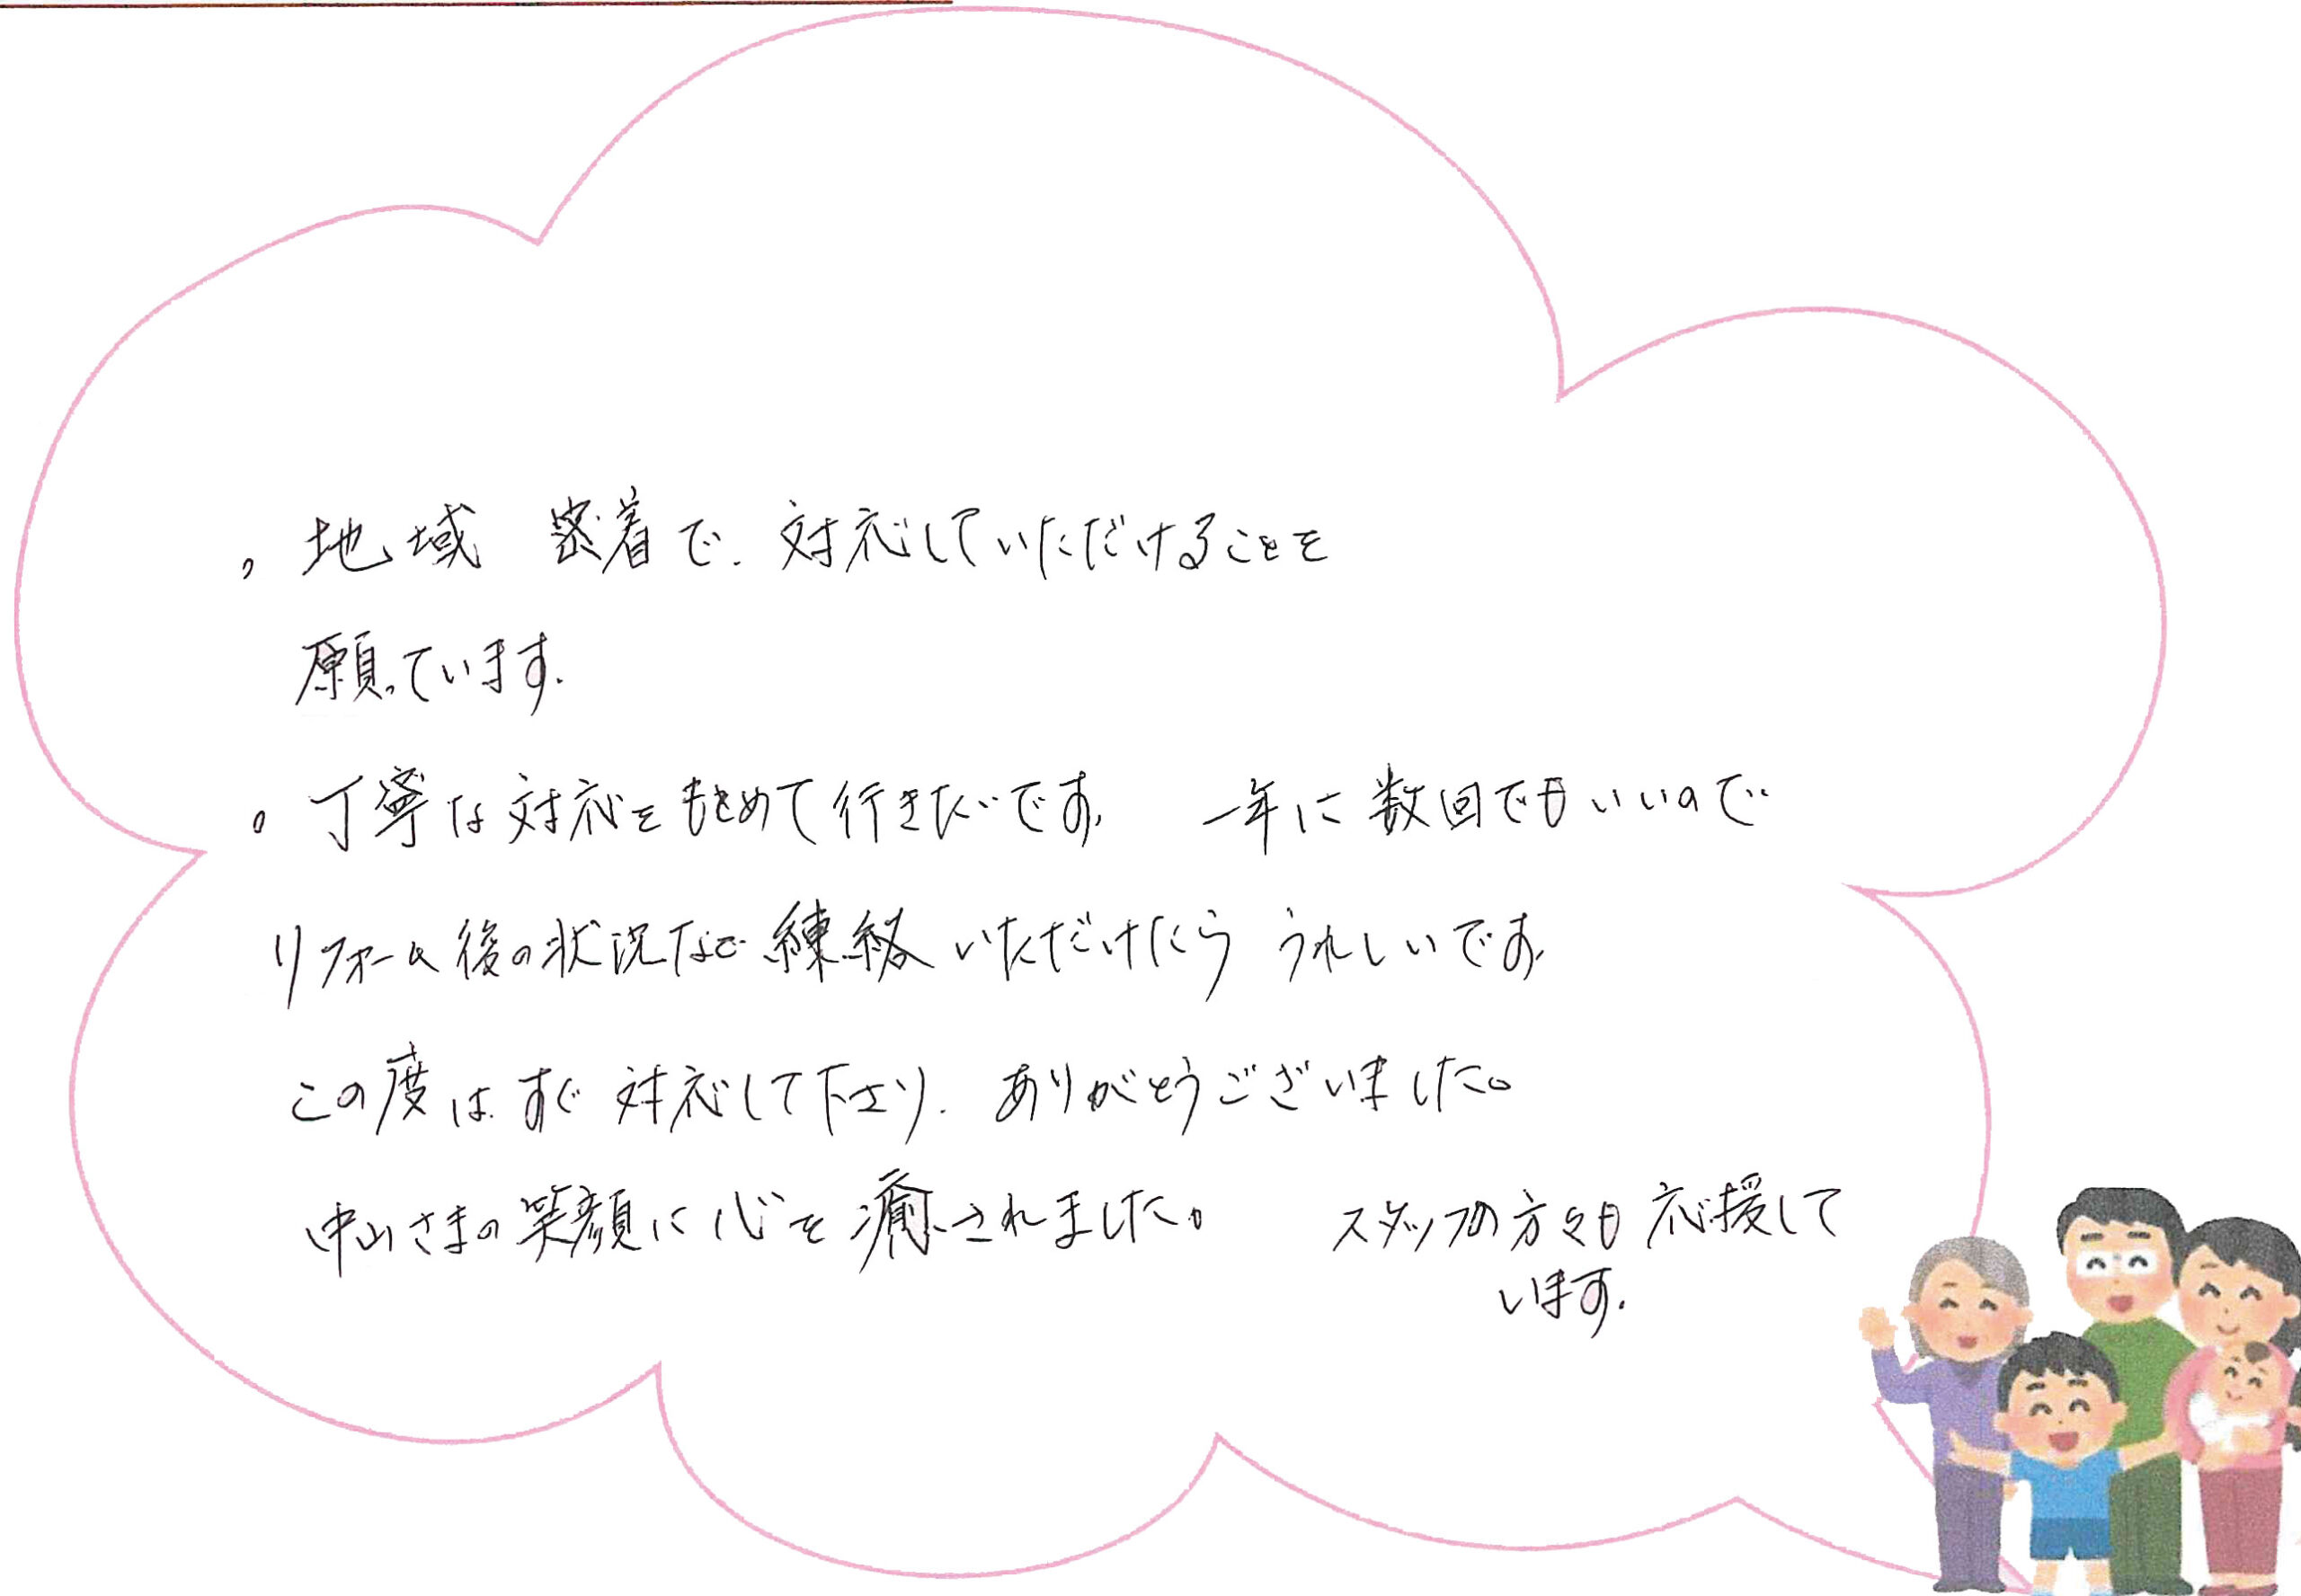 。地域 密着で、対応していただけることを
願っています。
。丁寧な対応をもとめて行きたいです。 一年に数回でもいいので
リフォーム後の状況など練絡いただけたら うれしいです。
この度は、すぐ対応して下さり、ありがとうございました。
中山さまの笑顔に心を癒されました。 スタッフの方々も応援して
います。